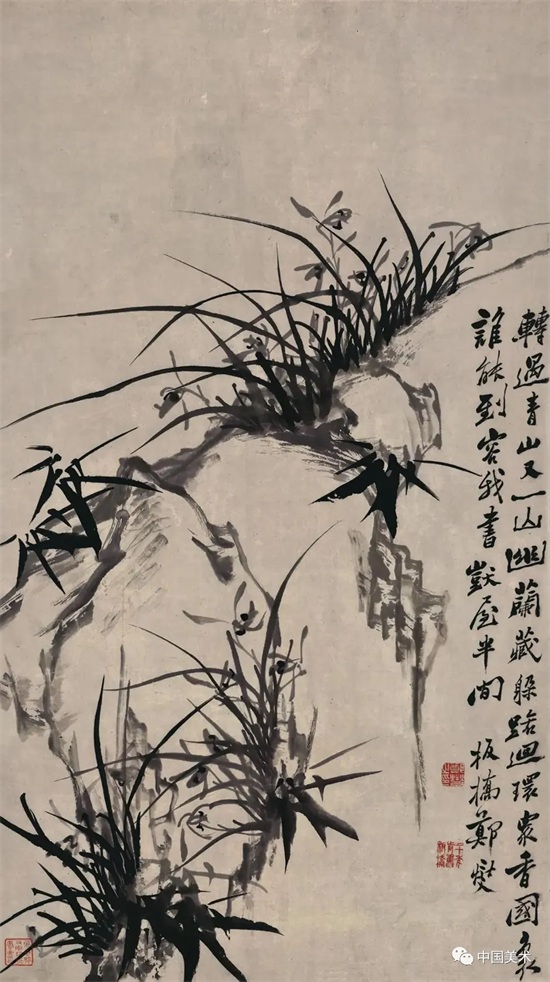 轉過青山又一山幽蘭藏躲路迴環衆香國裏
誰能到容我書獃屋半間 板橋鄭燮
中国美术